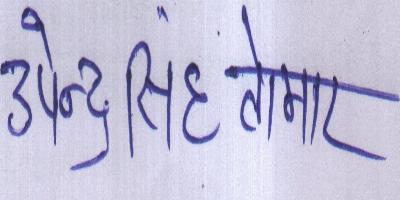 उपेन्द्र सिंह तोमार